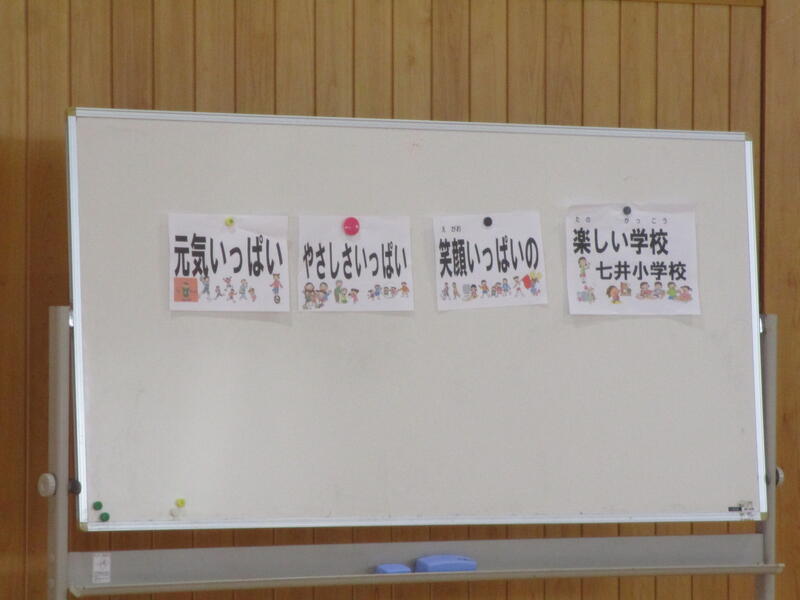 元気いっぱい
やさしさいっぱい
えがお
笑顔いっぱいの
たの がっこう
楽しい学校
七井小学校